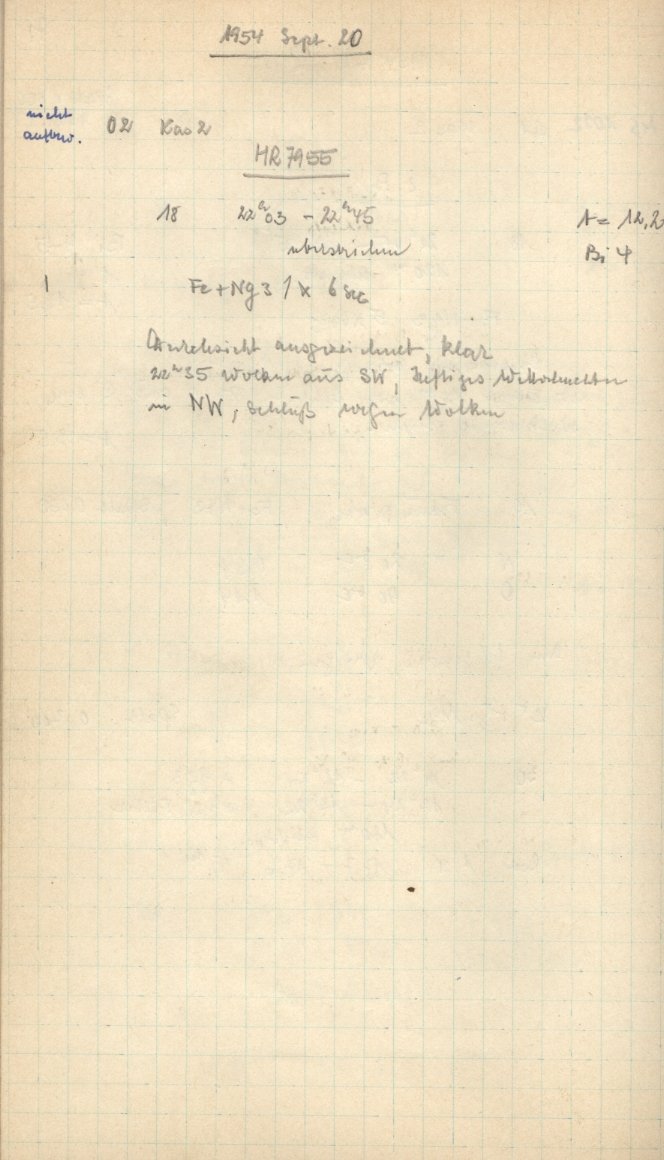 1954 Sept. 20
nicht
aufbew.
02 Kas 2
HR 7955
18 22ʰ03 – 22ʰ45 t = 12,2
überstrichen Bi 4
1 Fe + Ng 3 1 x 6 Sec
Durchsicht ausgezeichnet, klar
22ʰ35 Wolken aus SW, heftiges Wetterleuchten
in NW, Schluß wegen Wolken